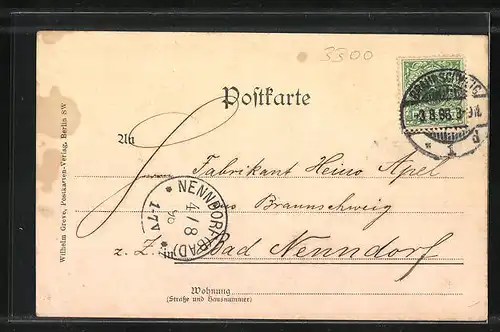 3300
Postkarte
BRAUNSCHWEIG
3.8.98. 8-9N.
1
d
An
Fabrikant Heino Apel
aus Braunschweig
z. Z. Bad Nenndorf
NENNDORF (BAD)
4/8
98
1-7V
Wohnung
(Straße und Hausnummer)
Wilhelm Greve, Postkarten-Verlag, Berlin SW